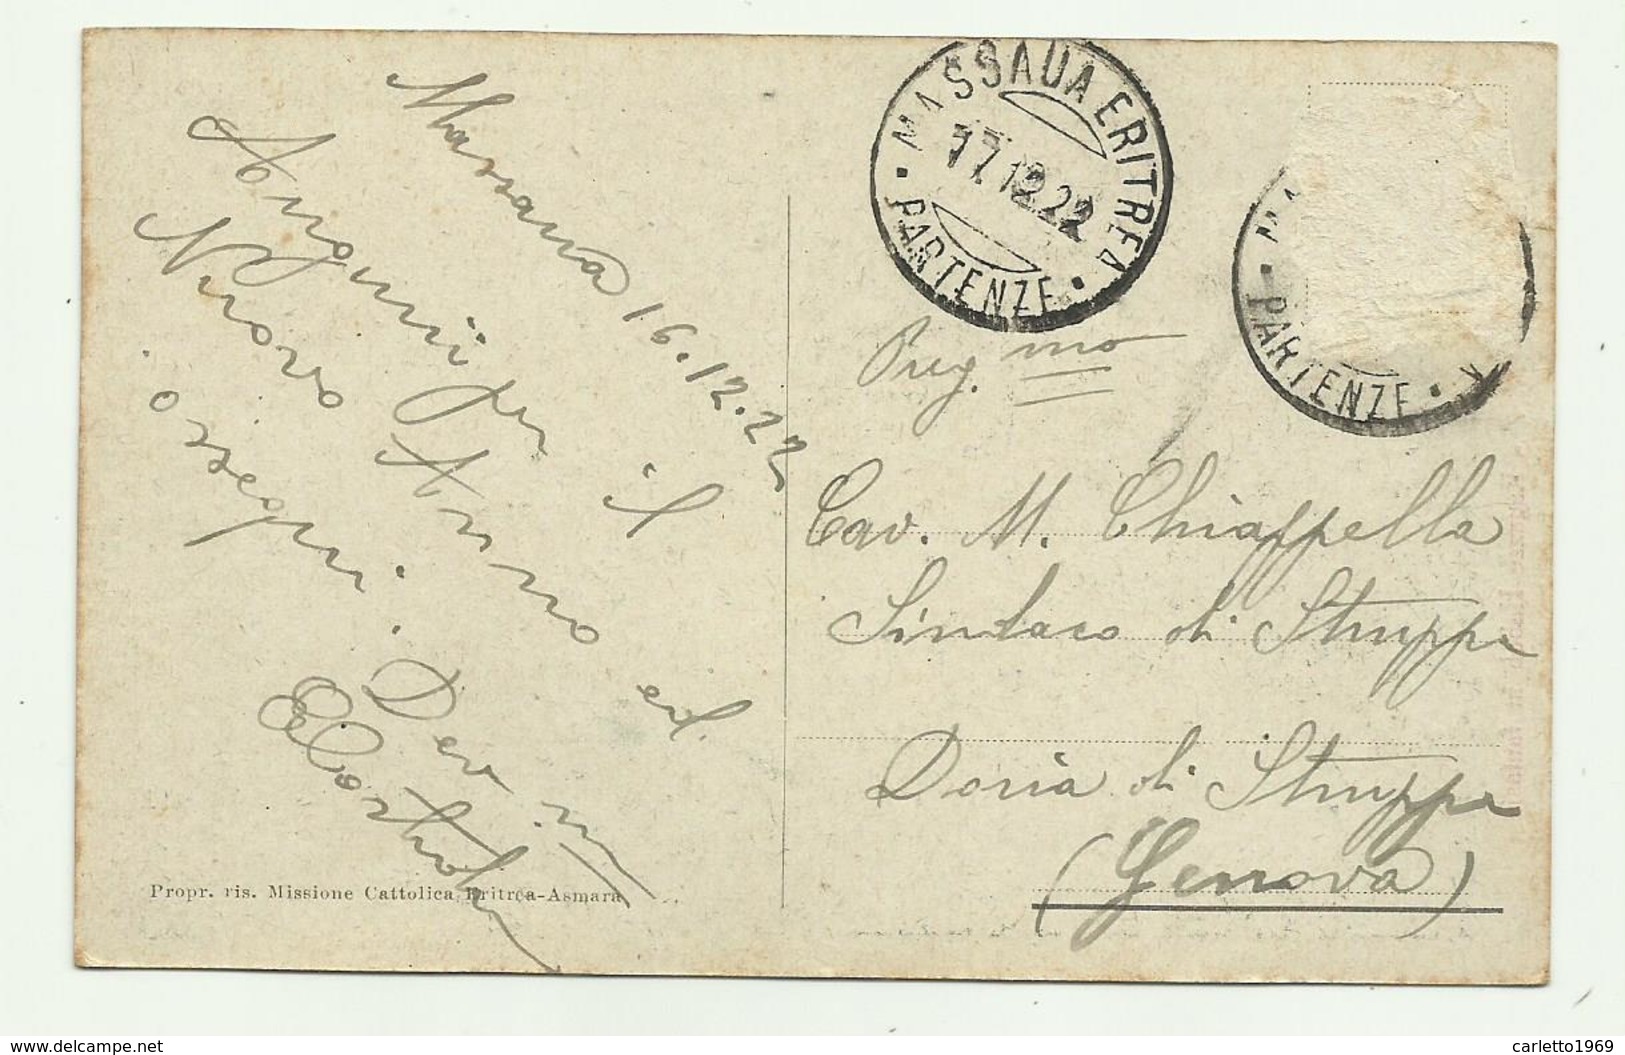 Massaua 16.12.22
Auguri per il
Nuovo Anno ed
ossequi. Dev.mi
MASSAUA ERITREA
17.12.22
PARTENZE
MA
PARTENZE
Preg.mo
Cav. M. Chiappella
Sindaco di Struppa
Doria di Struppa
(Genova)
Propr. ris. Missione Cattolica Eritrea-Asmara
www.delcampe.net
carletto1969